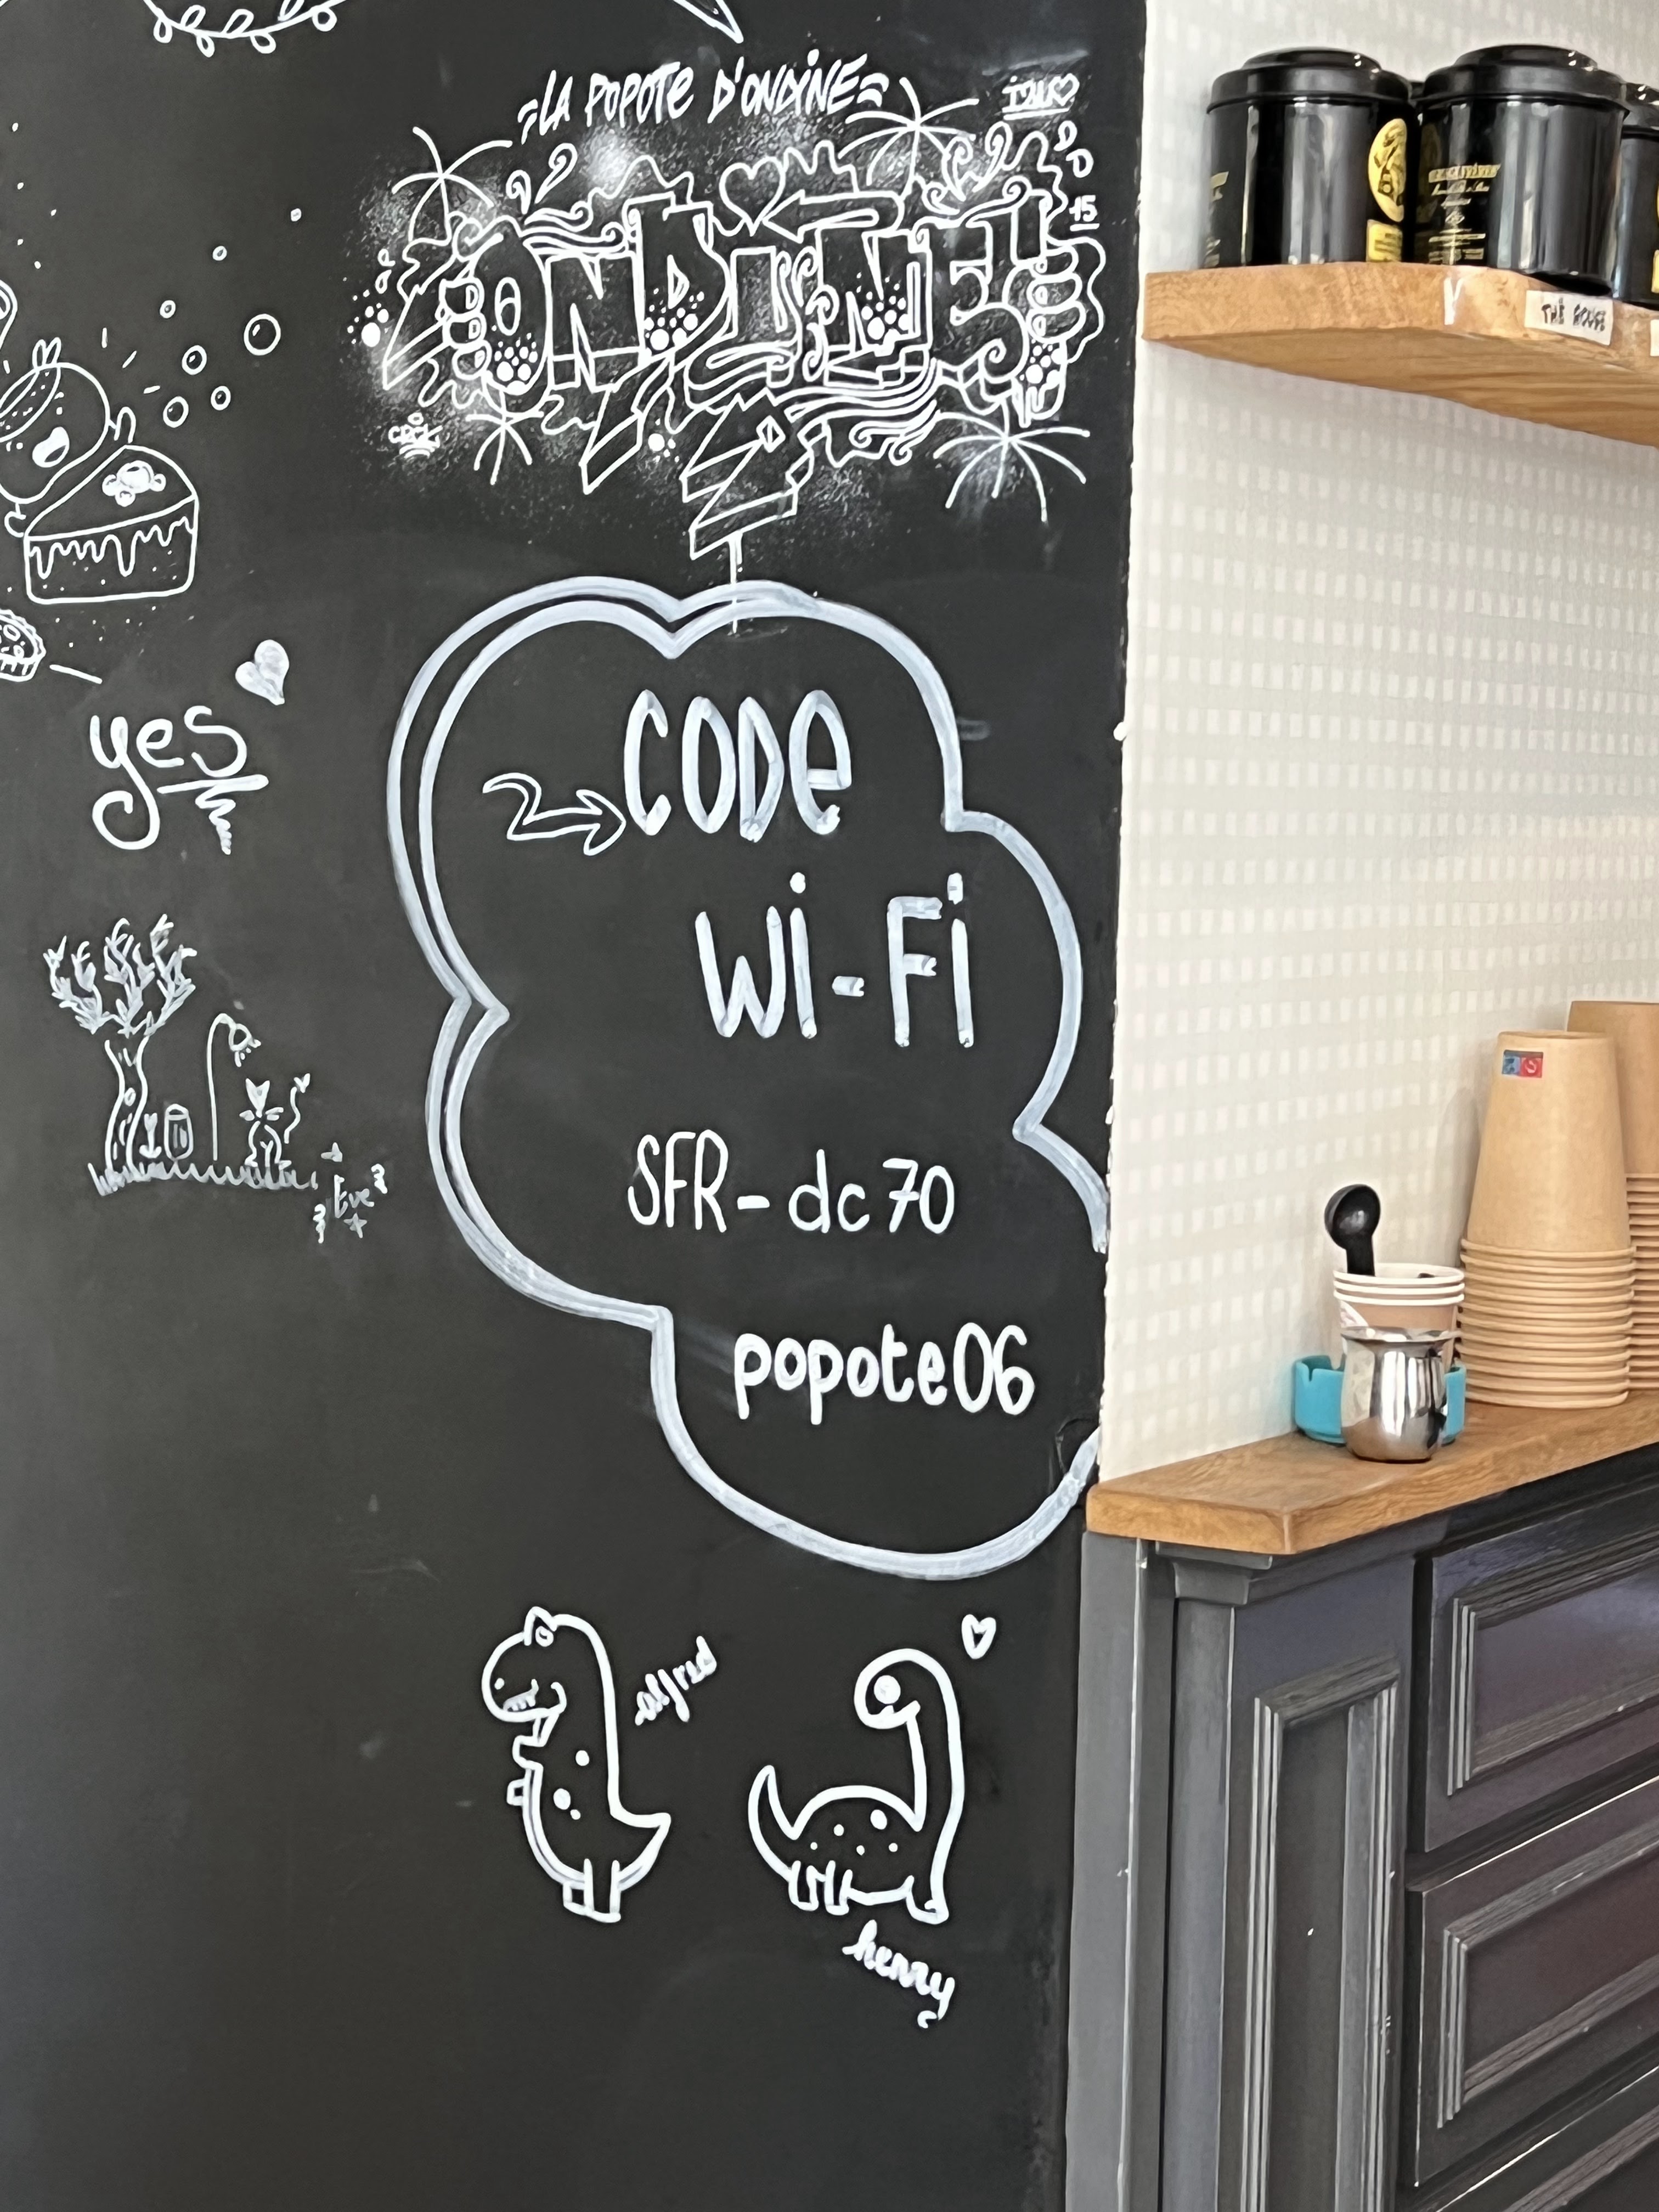 LA POPOTE D'ONDINE
ONDINE
15
THÉ ROUGE
yes
CODE
Wi-Fi
SFR-dc70
popote06
Eve
alfred
henry